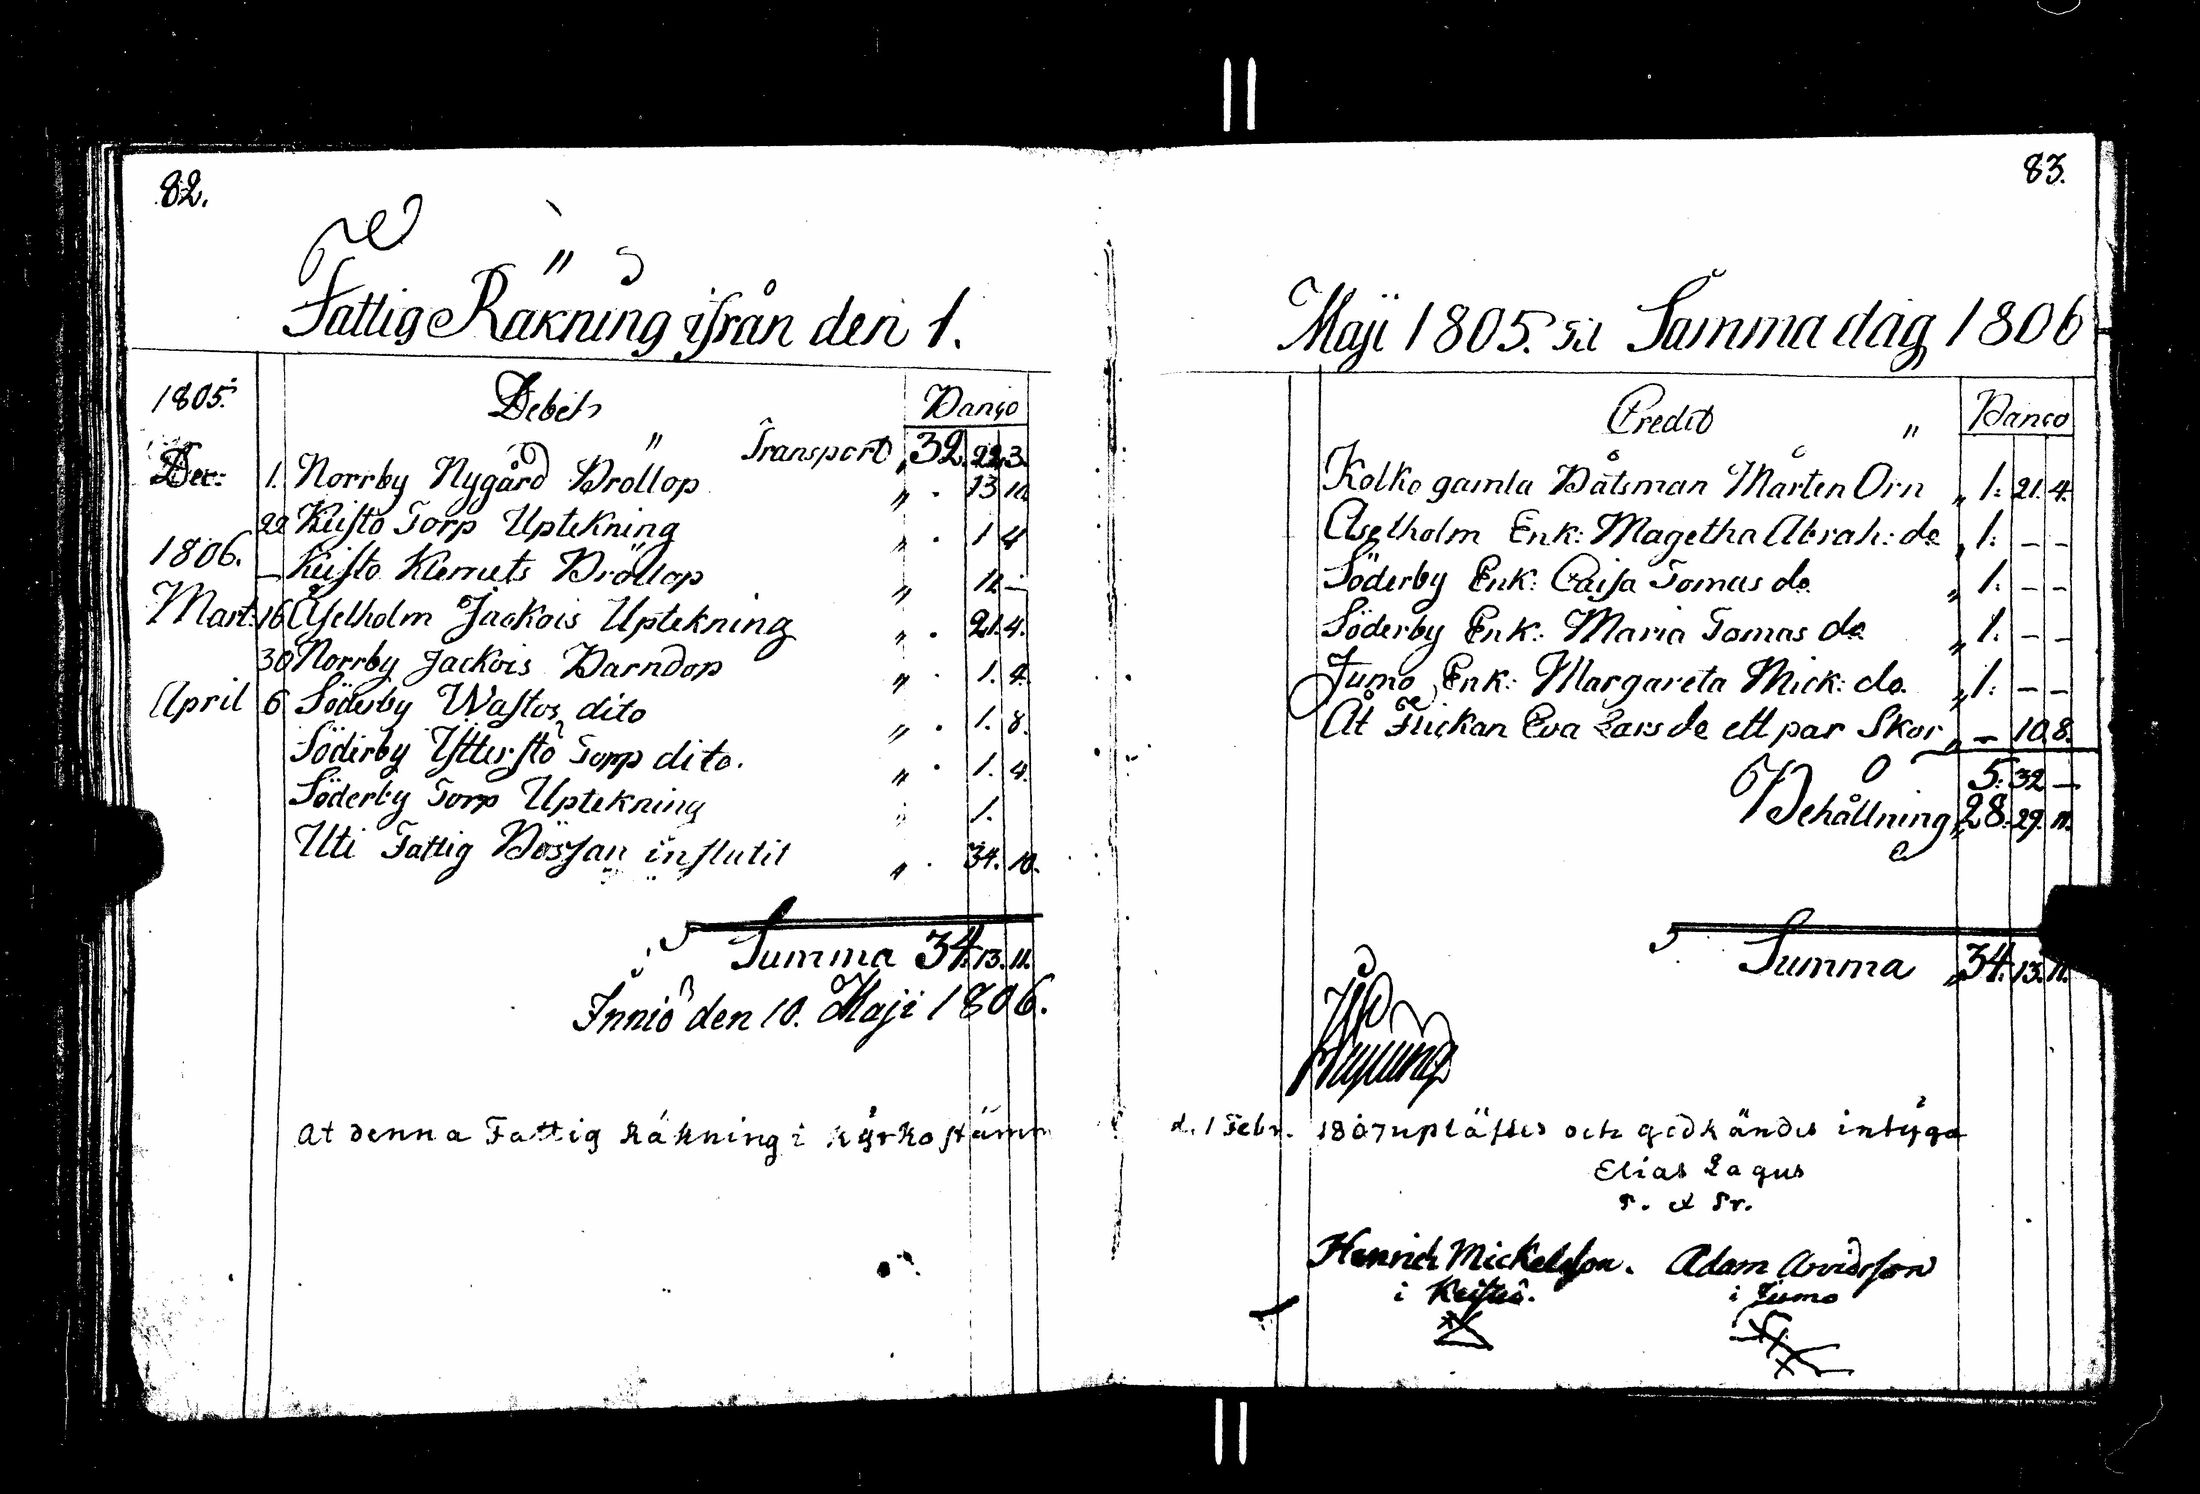 82.
Fattig Räkning ifrån den 1.
1805. Debet Banco
Transport „ 32. 22. 3.
Dec: 1. Norrby Nygård Bröllop „ . 13. 10.
22 Keisto Torp Uptekning „ . 1 4
1806. — Keisto Klemets Bröllop „ 12 —
Mart: 16 Åselholm Jackois Uptekning „ . 21. 4.
30 Norrby Jackois Barndop „ . 1. 4.
April 6 Söderby Wastos dito „ . 1. 8.
Söderby Ytterstö Torp dito. „ . 1. 4.
Söderby Torp Uptekning „ 1.
Uti Fattig Bössan influtit „ . 34. 10.
Summa 34. 13. 11.
Inniö den 10. Maji 1806.
At denna Fattig Räkning i kyrkostämm
83.
Maji 1805. til Samma dag 1806
Credit Banco
Kolko gamla Båtsman Mårten Örn „ 1: 21. 4.
Åselholm Enk: Magetha Abrah: do „ 1: — —
Söderby Enk: Caisa Tomas do. „ 1. — —
Söderby Enk: Maria Tomas do „ 1. — —
Jumo Enk: Margareta Mick: do. „ 1: — —
Åt Flickan Eva Lars do ett par Skor „ — 10. 8.
5. 32 —
Behållning „ 28. 29. 11.
Summa „ 34. 13. 11.
d. 1 Febr. 1807 uplästes och godkändes intyga
Elias Lagus
P. et Pr.
Henrich Mickelsson. Adam Arvidsson
i Keistiö. i Jumo